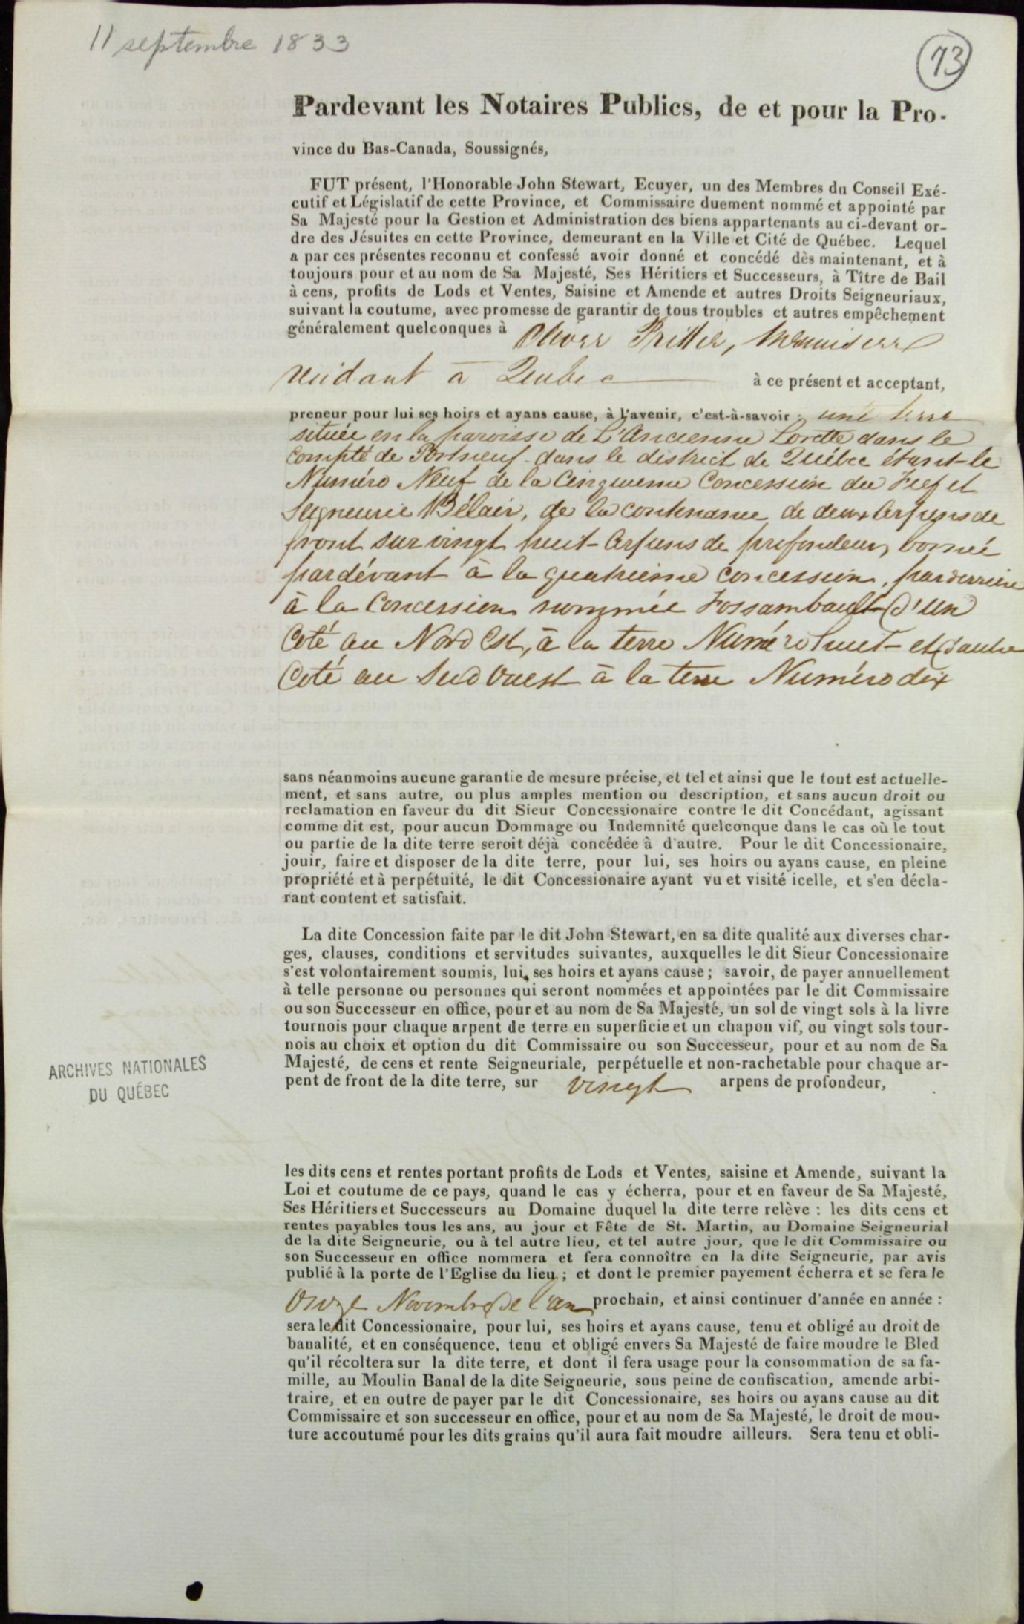 11 septembre 1833
73
Pardevant les Notaires Publics, de et pour la Pro-
vince du Bas-Canada, Soussignés,
FUT présent, l'Honorable John Stewart, Ecuyer, un des Membres du Conseil Exé-
cutif et Législatif de cette Province, et Commissaire duement nommé et appointé par
Sa Majesté pour la Gestion et Administration des biens appartenants au ci-devant or-
dre des Jésuites en cette Province, demeurant en la Ville et Cité de Québec. Lequel
a par ces présentes reconnu et confessé avoir donné et concédé dès maintenant, et à
toujours pour et au nom de Sa Majesté, Ses Héritiers et Successeurs, à Tître de Bail
à cens, profits de Lods et Ventes, Saisine et Amende et autres Droits Seigneuriaux,
suivant la coutume, avec promesse de garantir de tous troubles et autres empêchement
généralement quelconques à Oliver , Menuisier
residant à Quebec à ce présent et acceptant,
preneur pour lui ses hoirs et ayans cause, à l'avenir, c'est-à-savoir : une terre
située en la paroisse de L'Ancienne Lorette dans le
Compté de Portneuf dans le district de Québec étant le
Numéro Neuf de la Cinquieme Concession du Fief et
Seigneurie Bélair, de la contenance de deux Arpens de
front sur vingt huit Arpens de profondeur, bornée
pardévant à la quatrieme concession, par derriere
à la Concession nommée Fossambault d'un
Coté au Nord Est, à la terre Numéro huit et d'autre
Coté au Sud Ouest à la terre Numéro dix
sans néanmoins aucune garantie de mesure précise, et tel et ainsi que le tout est actuelle-
ment, et sans autre, ou plus amples mention ou description, et sans aucun droit ou
reclamation en faveur du dit Sieur Concessionaire contre le dit Concédant, agissant
comme dit est, pour aucun Dommage ou Indemnité quelconque dans le cas où le tout
ou partie de la dite terre seroit déjà concédée à d'autre. Pour le dit Concessionaire,
jouir, faire et disposer de la dite terre, pour lui, ses hoirs ou ayans cause, en pleine
propriété et à perpétuité, le dit Concessionaire ayant vu et visité icelle, et s'en décla-
rant content et satisfait.
La dite Concession faite par le dit John Stewart, en sa dite qualité aux diverses char-
ges, clauses, conditions et servitudes suivantes, auxquelles le dit Sieur Concessionaire
s'est volontairement soumis, lui, ses hoirs et ayans cause ; savoir, de payer annuellement
à telle personne ou personnes qui seront nommées et appointées par le dit Commissaire
ou son Successeur en office, pour et au nom de Sa Majesté, un sol de vingt sols à la livre
tournois pour chaque arpent de terre en superficie et un chapon vif, ou vingt sols tour-
nois au choix et option du dit Commissaire ou son Successeur, pour et au nom de Sa
Majesté, de cens et rente Seigneuriale, perpétuelle et non-rachetable pour chaque ar-
pent de front de la dite terre, sur vingt arpens de profondeur,
ARCHIVES NATIONALES
DU QUÉBEC
les dits cens et rentes portant profits de Lods et Ventes, saisine et Amende, suivant la
Loi et coutume de ce pays, quand le cas y écherra, pour et en faveur de Sa Majesté,
Ses Héritiers et Successeurs au Domaine duquel la dite terre relève : les dits cens et
rentes payables tous les ans, au jour et Fête de St. Martin, au Domaine Seigneurial
de la dite Seigneurie, ou à tel autre lieu, et tel autre jour, que le dit Commissaire ou
son Successeur en office nommera et fera connoître en la dite Seigneurie, par avis
publié à la porte de l'Eglise du lieu ; et dont le premier payement écherra et se fera le
Onze Novembre de l'an prochain, et ainsi continuer d'année en année :
sera le dit Concessionaire, pour lui, ses hoirs et ayans cause, tenu et obligé au droit de
banalité, et en conséquence, tenu et obligé envers Sa Majesté de faire moudre le Bled
qu'il récoltera sur la dite terre, et dont il fera usage pour la consommation de sa fa-
mille, au Moulin Banal de la dite Seigneurie, sous peine de confiscation, amende arbi-
traire, et en outre de payer par le dit Concessionaire, ses hoirs ou ayans cause au dit
Commissaire et son successeur en office, pour et au nom de Sa Majesté, le droit de mou-
ture accoutumé pour les dits grains qu'il aura fait moudre ailleurs. Sera tenu et obli-